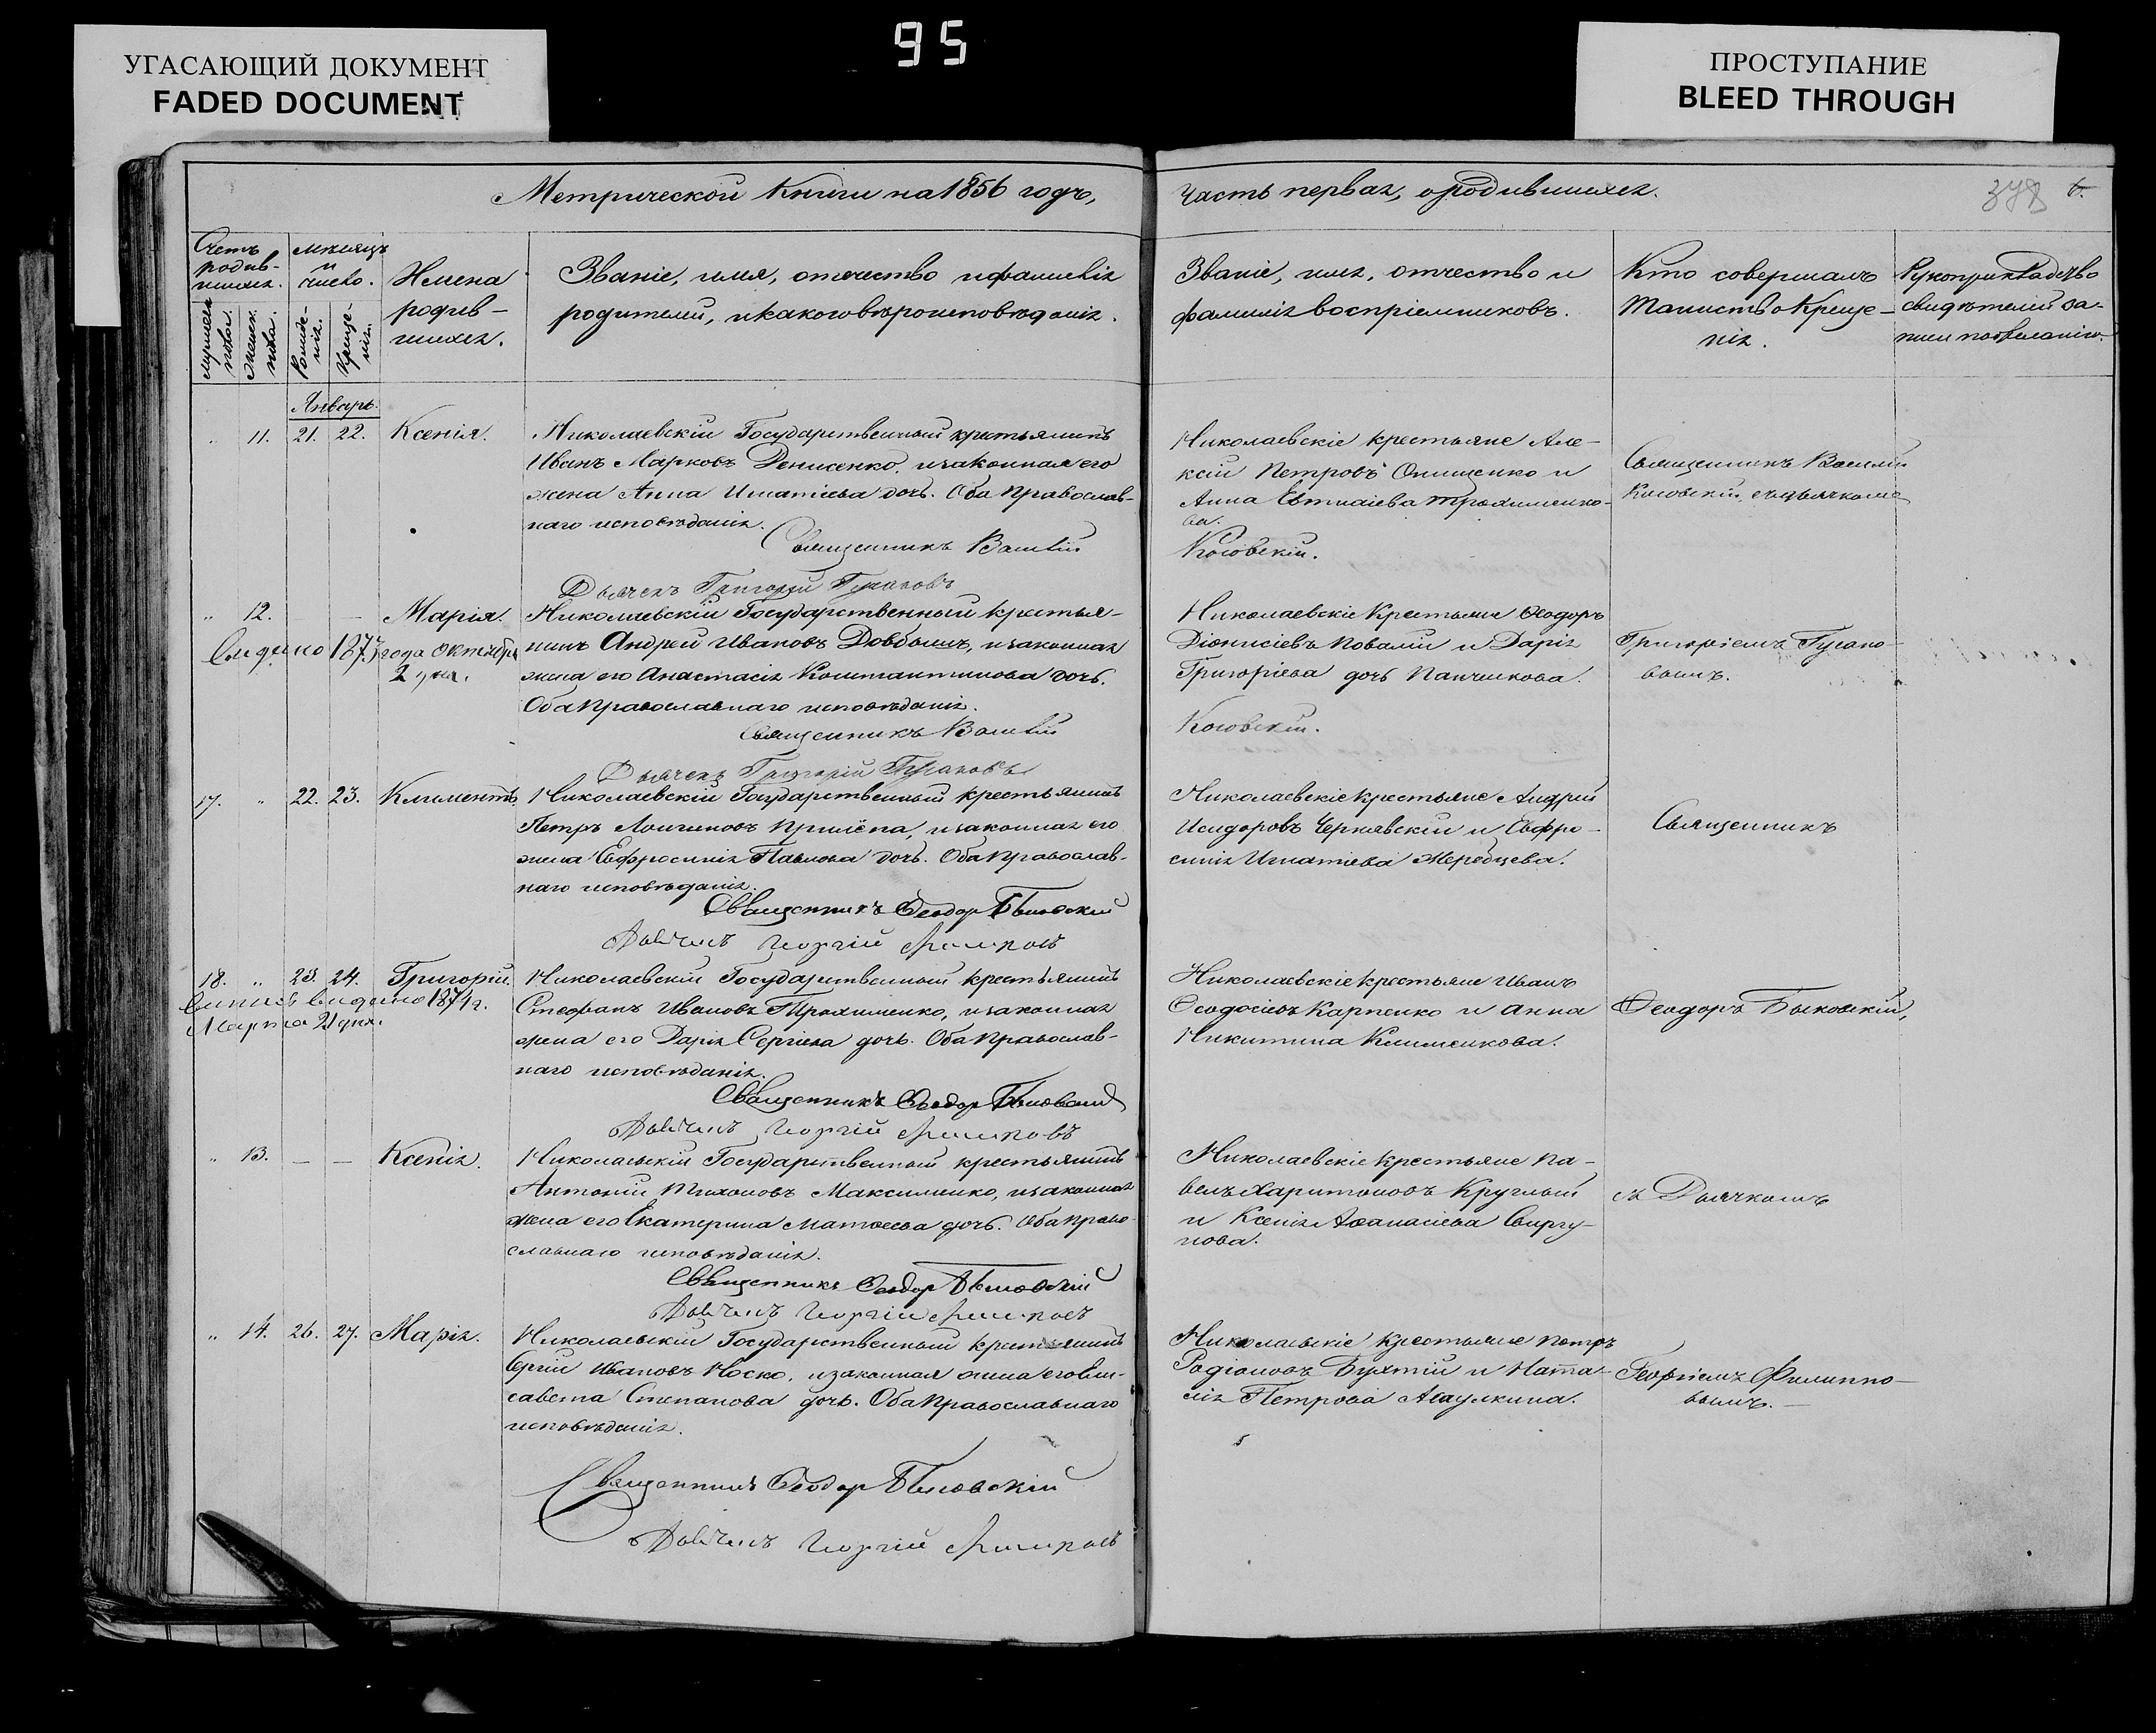 УГАСАЮЩИЙ ДОКУМЕНТ
FADED DOCUMENT
95
ПРОСТУПАНИЕ
BLEED THROUGH
Метрической Книги на 1856 годъ,
часть первая, о родившихся.
Счетъ родив-
шихся.
мѣсяцъ
и
число.
Имена
родив-
шихся.
Званіе, имя, отечество и фамилія
родителей, и какого вѣроисповѣданія.
Званіе, имя, отчество и
фамилія воспріемниковъ.
Кто совершалъ
Таинство Креще-
нія.
Рукоприкладство
свидѣтелей за-
писи по желанію.
Январь.
" 11. 21. 22. Ксенія.
Николаевскій Государственный крестьянинъ
Иванъ Марковъ Денисенко, и законная его
жена Анна Игнатіева дочь. Оба Православ-
наго исповѣданія.
Священникъ Василій
Дьячекъ Григорій
Николаевскіе крестьяне Але-
ксій Петровъ Онищенко и
Анна Трохименко-
ва.
Косовскій.
Священникъ Василій
Косовскій, съ дьячкомъ
" 12. — — Марія.
Видѣно 187 года Октября
2 дня.
Николаевскій Государственный крестья-
нинъ Андрей Ивановъ Довбышъ, и законная
жена его Анастасія Константинова дочь.
Оба Православнаго исповѣданія.
Священникъ Василій
Дьячекъ Григорій
Николаевскіе Крестьяне Ѳеодоръ
Діонисіевъ Повалій и Дарія
Григоріева дочь Панчишкова.
Косовскій.
Григоріемъ
вымъ.
17. " 22. 23. Климентъ
Николаевскій Государственный крестьянинъ
Петръ Логгиновъ Прилѣпа, и законная его
жена Евфросинія Павлова дочь. Оба Православ-
наго исповѣданія.
Священникъ Ѳеодор Быковскій
Дьячекъ Георгій Филиповъ
Николаевскіе крестьяне Андрей
Исидоровъ Чернявскій и Евфро-
синія Игнатіева
Священникъ
18. " 23. 24. Григорій.
видѣно 1874 г.
Марта 21 дня.
Николаевскій Государственный крестьянинъ
Стефанъ Ивановъ Трохименко, и законная
жена его Дарія Сергіева дочь. Оба Православ-
наго исповѣданія.
Священникъ Ѳеодор Быковскій
Дьячекъ Георгій Филиповъ
Николаевскіе крестьяне Иванъ
Ѳеодосіевъ Карпенко и Анна
Никитина Клименкова.
Ѳеодоръ Быковскій,
" 13. — — Ксенія.
Николаевскій Государственный крестьянинъ
Антоній Тихоновъ Максименко, и законная
жена его Екатерина Матѳеева дочь. Оба Право-
славнаго исповѣданія.
Священникъ Ѳеодор Быковскій
Дьячекъ Георгій Филиповъ
Николаевскіе крестьяне Па-
велъ Харитоновъ Круглый
и Ксенія Аѳанасіева Свиргу-
нова.
съ Дьячкомъ
" 14. 26. 27. Марія.
Николаевскій Государственный крестьянинъ
Сергій Ивановъ Носко, и законная жена его Ели-
савета Степанова дочь. Оба Православнаго
исповѣданія.
Священникъ Ѳеодор Быковскій
Дьячекъ Георгій Филиповъ
Николаевскіе крестьяне Петръ
Родіоновъ Бухтій и Ната-
лія Петрова
Георгіемъ Филиппо-
вымъ.